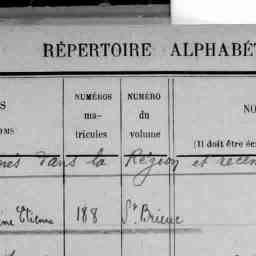 RÉPERTOIRE ALPHABÉ
S NUMÉROS NUMÉRO NO
ma- du
OMS tricules volume (Il doit être éc
nés dans la Région et recen
ine Etienne 188 St Brieuc